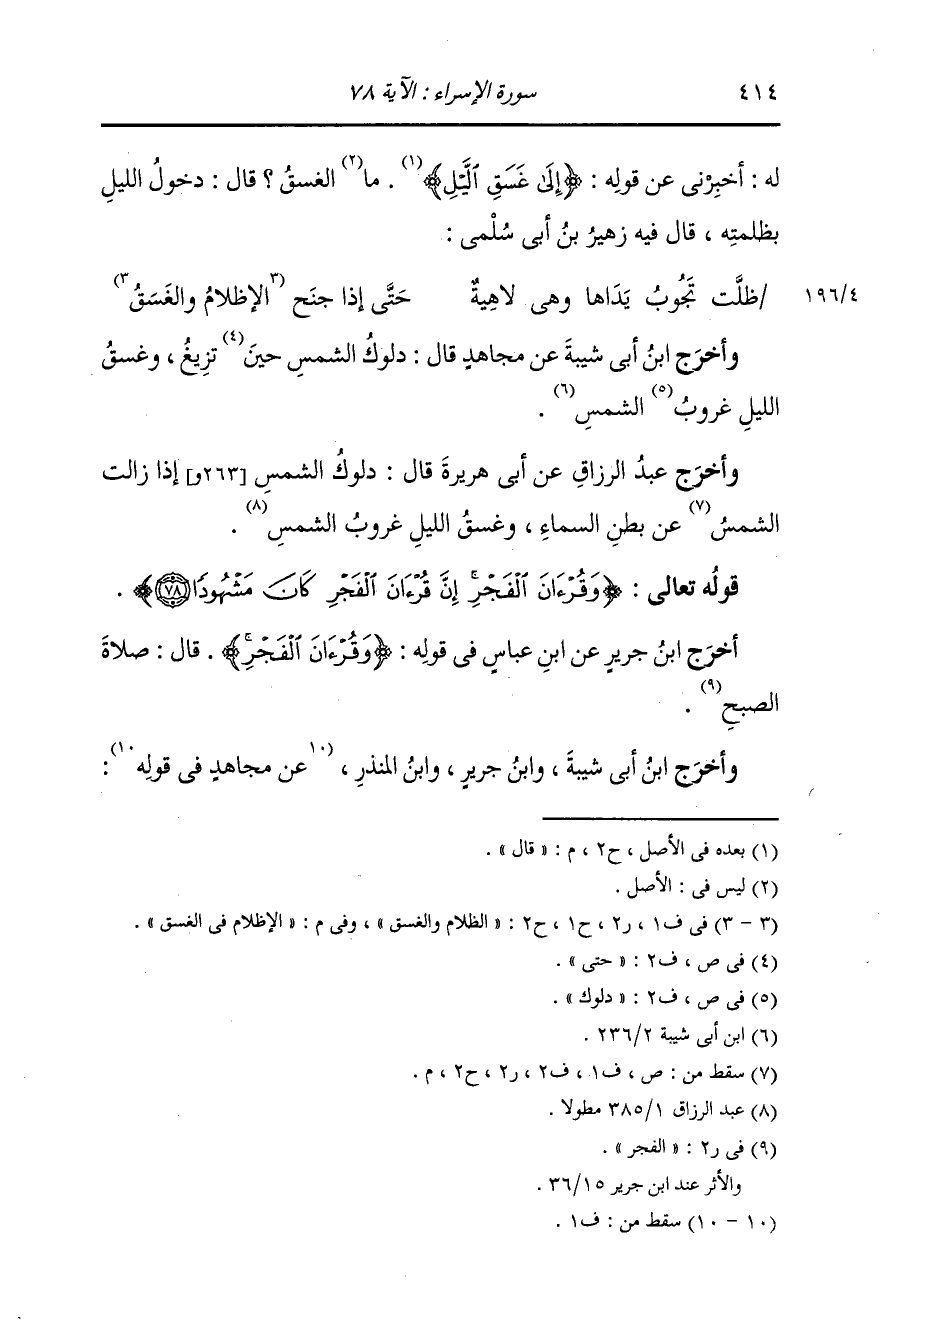 ٤١٤ سورة الإسراء : الآية ٧٨
له : أخبِرْنى عن قولِه : ﴿إِلَىٰ غَسَقِ ٱلَّيْلِ﴾(١) . ما(٢) الغسقُ ؟ قال : دخولُ الليلِ
بظلمتِه ، قال فيه زهيرُ بنُ أبى سُلْمى :
١٩٦/٤ /ظلَّت تَجُوبُ يَدَاها وهى لاهيةٌ حَتَّى إذا جنَح (٣الإظلامُ والغَسَقُ٣)
وأخرَج ابنُ أبى شيبةَ عن مجاهدٍ قال : دلوكُ الشمسِ حينَ(٤) تزيغُ ، وغسقُ
الليلِ غروبُ(٥) الشمسِ(٦) .
وأخرَج عبدُ الرزاقِ عن أبى هريرةَ قال : دلوكُ الشمسِ [٢٦٣و] إذا زالت
الشمسُ(٧) عن بطنِ السماءِ ، وغسقُ الليلِ غروبُ الشمسِ(٨) .
قولُه تعالى : ﴿وَقُرْءَانَ ٱلْفَجْرِۖ إِنَّ قُرْءَانَ ٱلْفَجْرِ كَانَ مَشْهُودًا ٧٨﴾ .
أخرَج ابنُ جريرٍ عن ابنِ عباسٍ فى قولِه : ﴿وَقُرْءَانَ ٱلْفَجْرِۖ﴾ . قال : صلاةَ
الصبحِ(٩) .
وأخرَج ابنُ أبى شيبةَ ، وابنُ جريرٍ ، وابنُ المنذرِ ، (١٠عن مجاهدٍ فى قولِه١٠) :
(١) بعده فى الأصل ، ح٢ ، م : « قال » .
(٢) ليس فى : الأصل .
(٣ - ٣) فى ف١ ، ر٢ ، ح١ ، ح٢ : « الظلام والغسق » ، وفى م : « الإظلام فى الغسق » .
(٤) فى ص ، ف٢ : « حتى » .
(٥) فى ص ، ف٢ : « دلوك » .
(٦) ابن أبى شيبة ٢٣٦/٢ .
(٧) سقط من : ص ، ف١ ، ف٢ ، ر٢ ، ح٢ ، م .
(٨) عبد الرزاق ٣٨٥/١ مطولا .
(٩) فى ر٢ : « الفجر » .
والأثر عند ابن جرير ٣٦/١٥ .
(١٠ - ١٠) سقط من : ف١ .